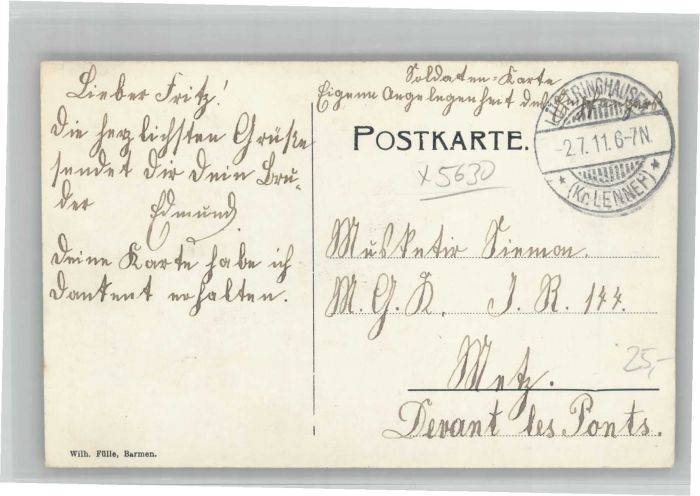 Lieber Fritz!
Die herzlichsten Grüße
sendet Dir Dein Bru-
der Edmund.
Deine Karte habe ich
dankent erhalten.
Soldaten-Karte
Eigene Angelegenheit des Empfängers
POSTKARTE.
-2.7.11.6-7N.
* (Kr. LENNEP) *
x5630
Musketir Siemon.
M. G. K. I. R. 144.
25,-
Metz.
Devant les Ponts.
Wilh. Fülle, Barmen.